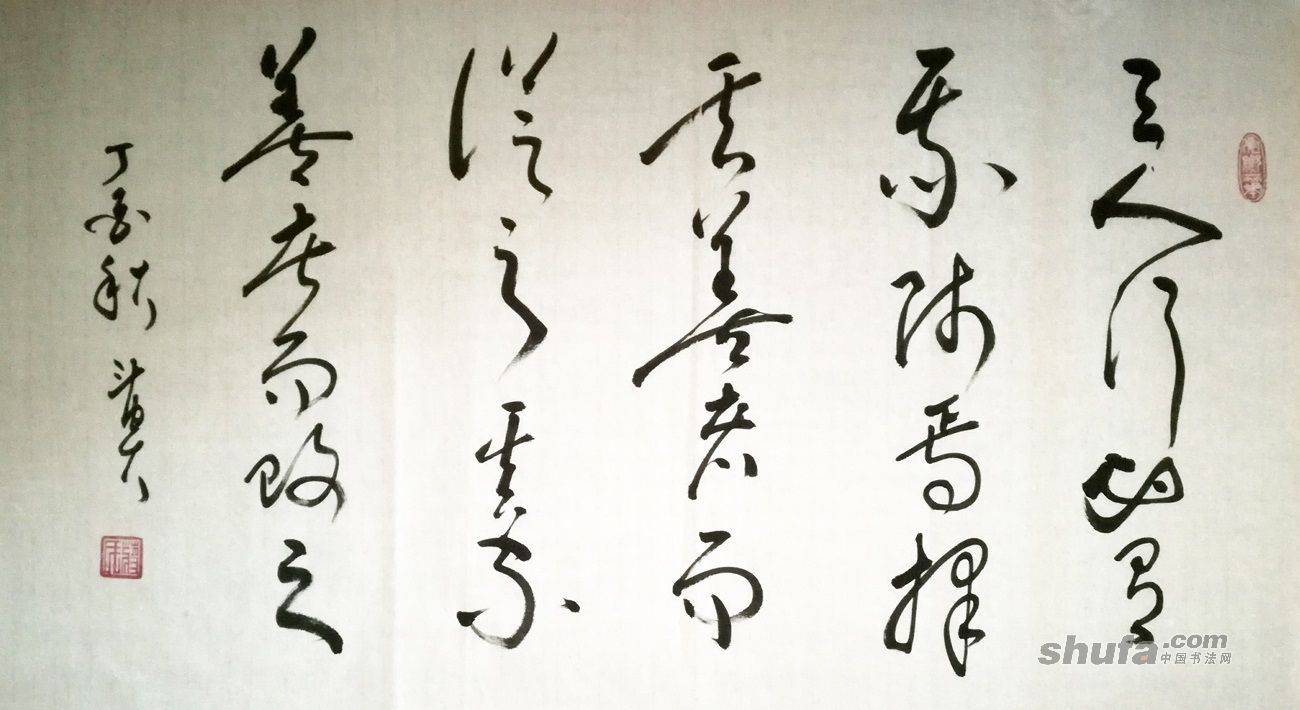 三人行必有
我師焉擇
其善者而
從之其不
善者而改之
丁酉秋
shufa.com
中国书法网